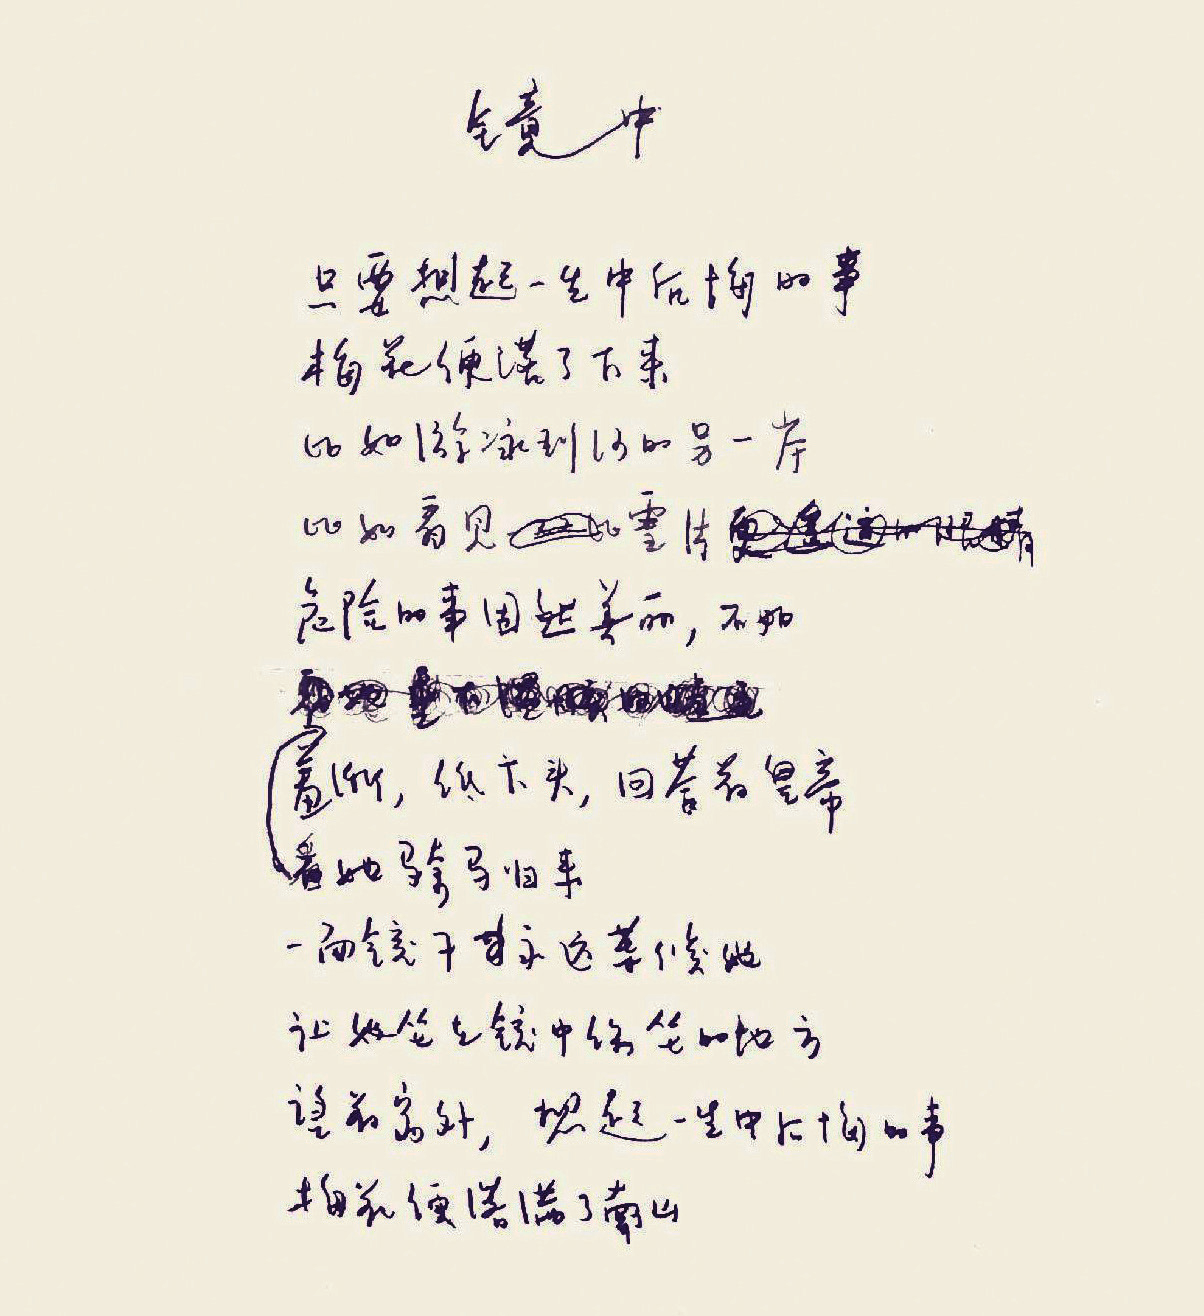 镜中
只要想起一生中后悔的事
梅花便落了下来
比如游泳到河的另一岸
比如看见比雪片
危险的事固然美丽,不如
羞惭,低下头,回答着皇帝
看她骑马归来
一面镜子永远等候她
让她坐在镜中坐的地方
望着窗外,想起一生中后悔的事
梅花便落满了南山